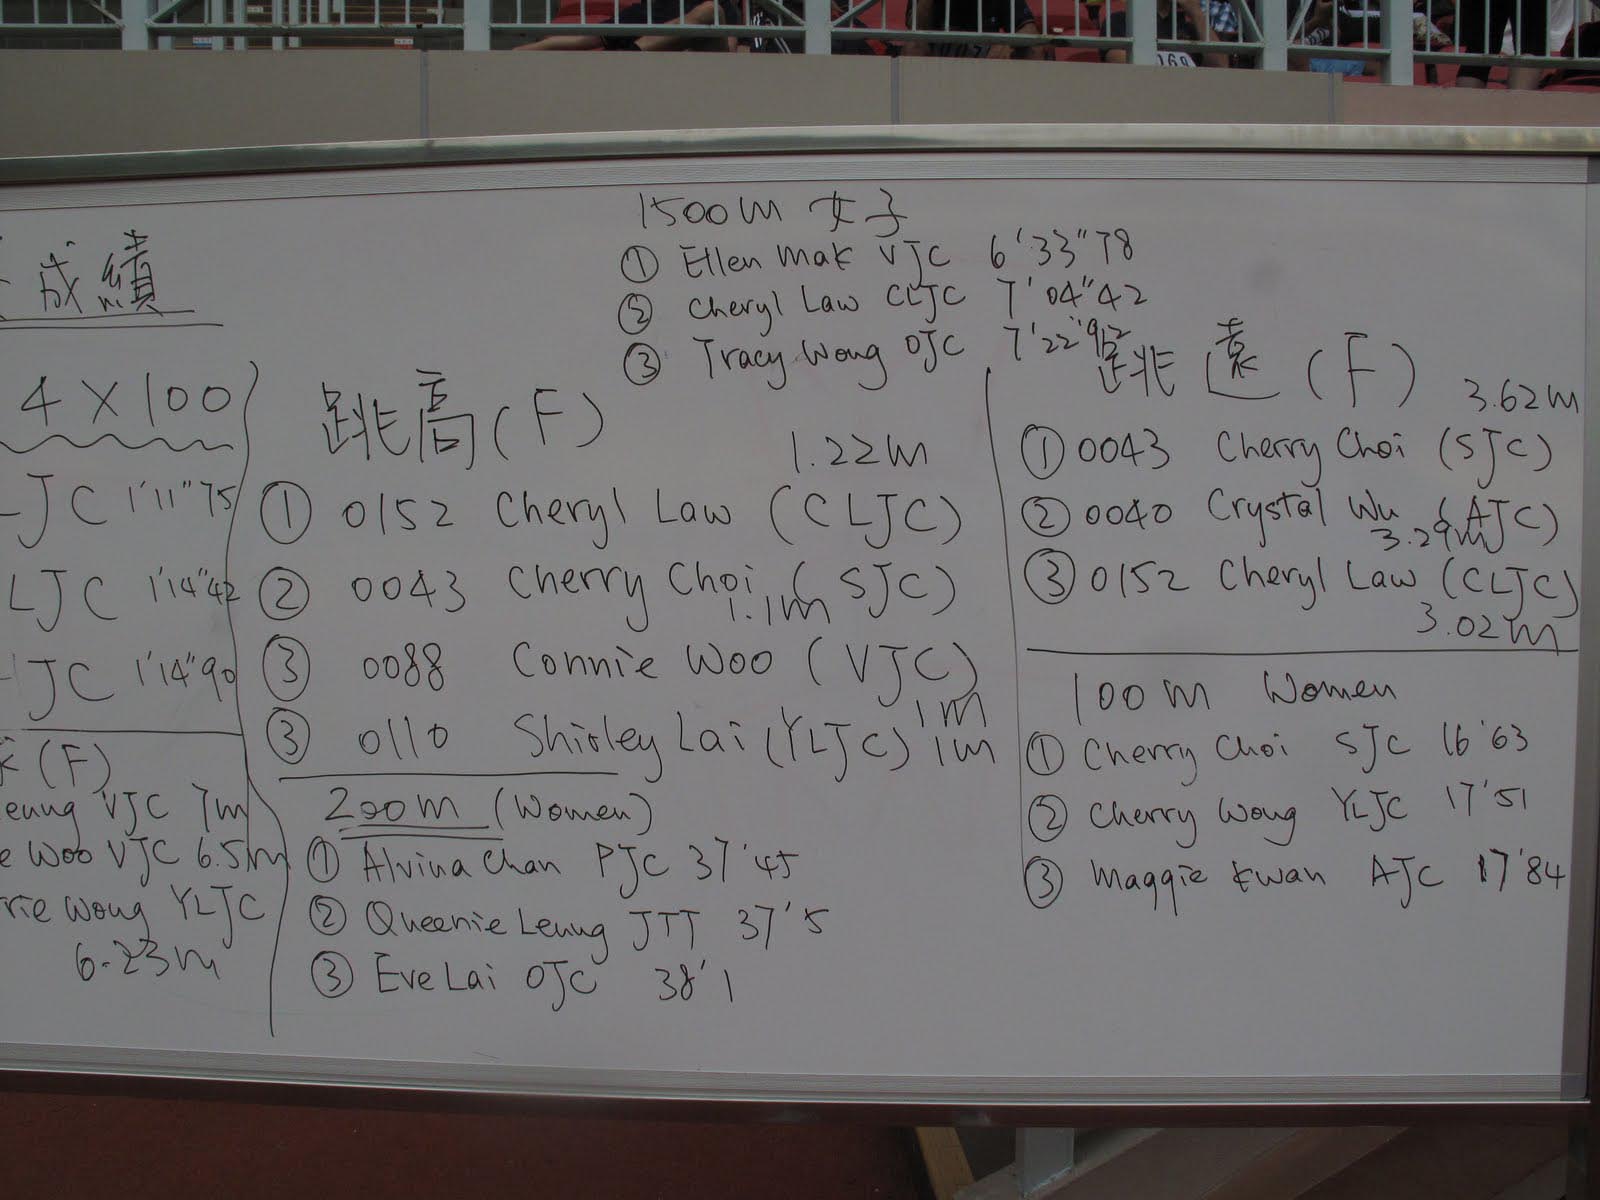 成績
1500m 女子
① Ellen Mak VJC 6'33"78
② Cheryl Law CLJC 7'04"42
③ Tracy Wong OJC 7'22"92
4 X 100
JC 1'11"75
LJC 1'14"42
JC 1'14"90
(F)
eung VJC 7m
e Woo VJC 6.5m
rie Wong YLJC
6.23m
跳高(F)
1.22m
① 0152 Cheryl Law (CLJC)
② 0043 Cherry Choi (SJC)
1.1m
③ 0088 Connie Woo (VJC)
1m
③ 0110 Shirley Lai (YLJC) 1m
200m (Women)
① Alvina Chan PJC 37'45
② Queenie Leung JTT 37'5
③ Eve Lai OJC 38'1
跳遠(F)
3.62m
① 0043 Cherry Choi (SJC)
② 0040 Crystal Wu (AJC)
3.29m
③ 0152 Cheryl Law (CLJC)
3.02m
100m Women
① Cherry Choi SJC 16'63
② Cherry Wong YLJC 17'51
③ Maggie Kwan AJC 17'84